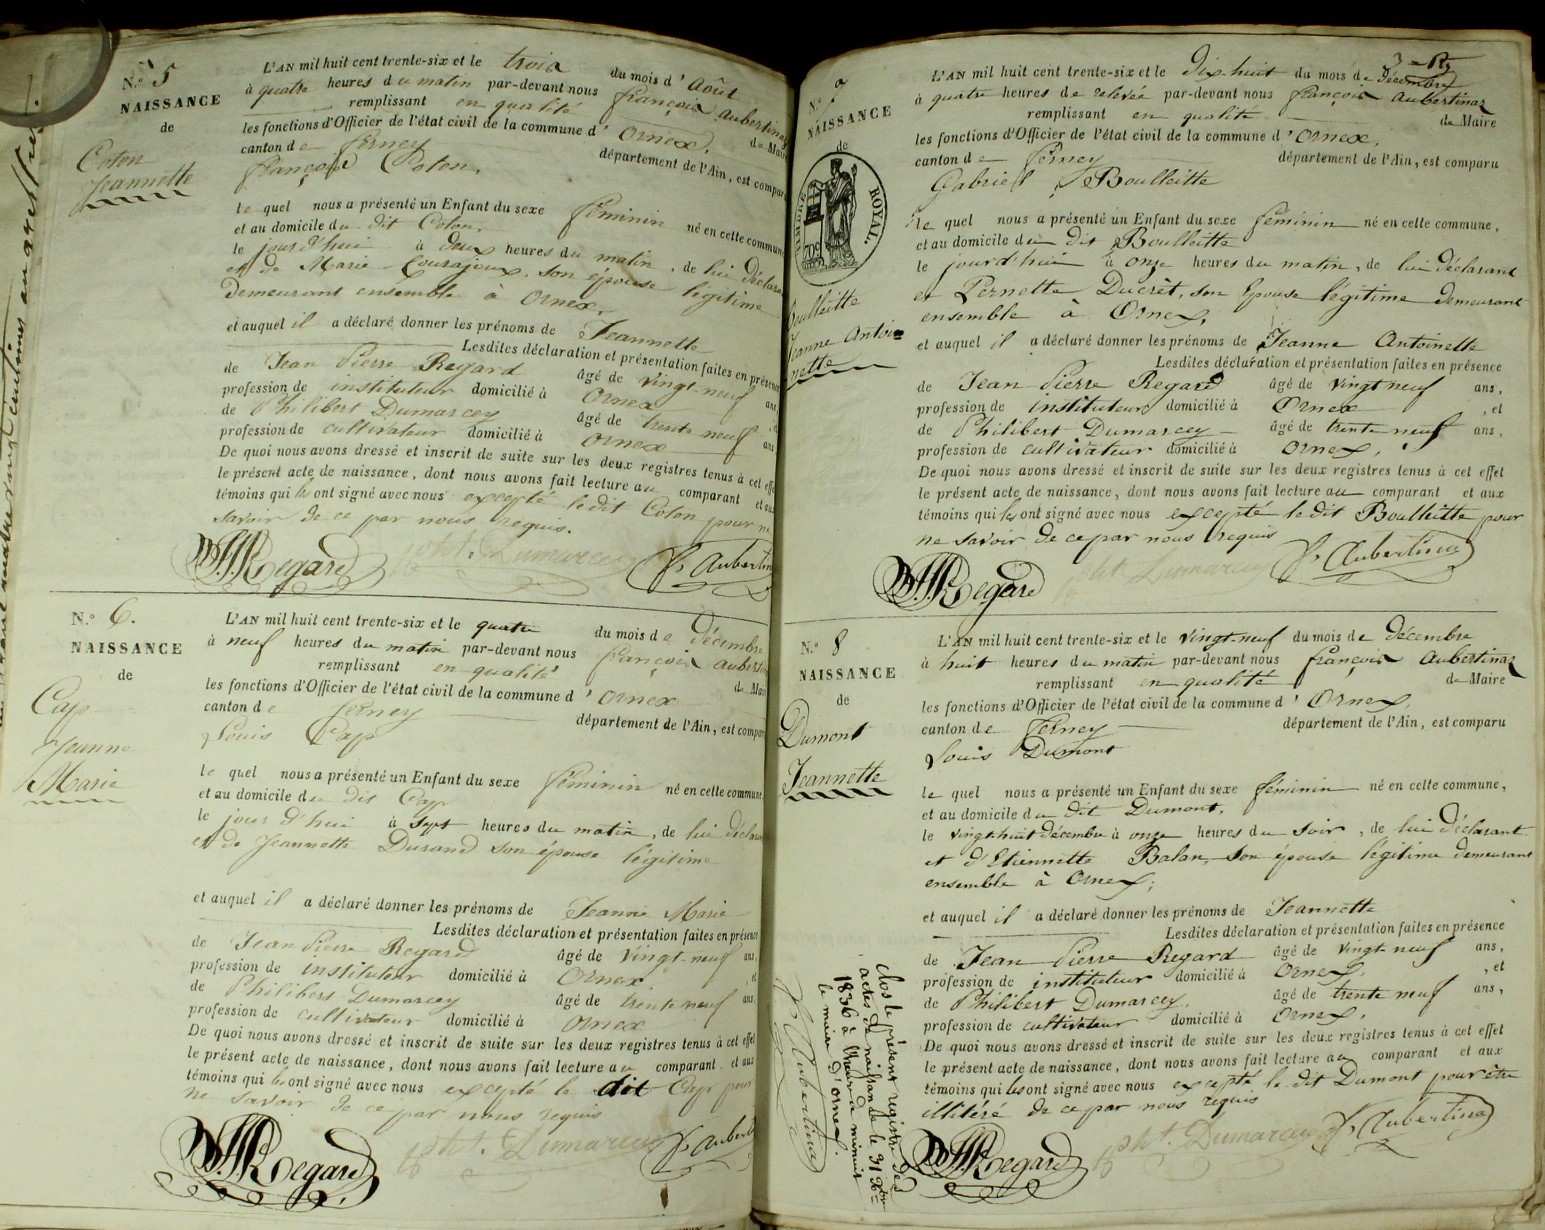 N.º 5
NAISSANCE
de
Coton
Jeannette
L'AN mil huit cent trente-six et le trois du mois d'Août
à quatre heures du matin par-devant nous françois Aubertinaz
remplissant en qualité de Maire
les fonctions d'Officier de l'état civil de la commune d'Ornex.
canton de ferney département de l'Ain, est comparu
françois Coton.
le quel nous a présenté un Enfant du sexe féminin né en cette commune
et au domicile du dit Coton.
le jourd'hui à deux heures du matin, de lui déclarant
et de Marie Courajoux, son épouse légitime
demeurant ensemble à Ornex.
et auquel il a déclaré donner les prénoms de Jeannette
Lesdites déclaration et présentation faites en présence
de Jean Pierre Regard âgé de vingt neuf ans,
profession de instituteur domicilié à Ornex
de Philibert Dumarcey âgé de trente neuf ans
profession de cultivateur domicilié à Ornex
De quoi nous avons dressé et inscrit de suite sur les deux registres tenus à cet effet
le présent acte de naissance, dont nous avons fait lecture au comparant et aux
témoins qui les ont signé avec nous excepté le dit Coton pour ne
savoir de ce par nous requis.
J. P. Regard pht. Dumarcey f. Aubertin
N.º 6.
NAISSANCE
de
Cap
Jeanne
Marie
L'AN mil huit cent trente-six et le quatre du mois de décembre
à neuf heures du matin par-devant nous françois Aubertin
remplissant en qualité de Maire
les fonctions d'Officier de l'état civil de la commune d'Ornex
canton de ferney département de l'Ain, est comparu
Louis Cap
le quel nous a présenté un Enfant du sexe féminin né en cette commune,
et au domicile du dit Cap
le jour d'hui à sept heures du matin, de lui déclarant
et de Jeannette Durand son épouse légitime
et auquel il a déclaré donner les prénoms de Jeanne Marie
Lesdites déclaration et présentation faites en présence
de Jean Pierre Regard âgé de vingt-neuf ans,
profession de instituteur domicilié à Ornex, et
de Philibert Dumarcey âgé de trente neuf ans,
profession de cultivateur domicilié à Ornex
De quoi nous avons dressé et inscrit de suite sur les deux registres tenus à cet effet
le présent acte de naissance, dont nous avons fait lecture au comparant et aux
témoins qui les ont signé avec nous excepté le dit Cap pour
ne savoir de ce par nous requis
J. P. Regard pht. Dumarcey f. Aubert
N.º 7
NAISSANCE
de
TIMBRE ROYAL.
Boulleitte
Jeanne Antoi=
nette
L'AN mil huit cent trente-six et le dix huit du mois de décembre
à quatre heures de relevée par-devant nous françois Aubertinaz
remplissant en qualité de Maire
les fonctions d'Officier de l'état civil de la commune d'Ornex,
canton de ferney département de l'Ain, est comparu
Gabriel Boulleitte
le quel nous a présenté un Enfant du sexe féminin né en cette commune,
et au domicile du dit Boulleitte
le jourd'hui à onze heures du matin, de lui déclarant
et Pernette Ducrêt, son épouse légitime demeurant
ensemble à Ornex,
et auquel il a déclaré donner les prénoms de Jeanne Antoinette
Lesdites déclaration et présentation faites en présence
de Jean Pierre Regard âgé de vingt neuf ans,
profession de instituteur domicilié à Ornex, et
de Philibert Dumarcey âgé de trente-neuf ans,
profession de cultivateur domicilié à Ornex,
De quoi nous avons dressé et inscrit de suite sur les deux registres tenus à cet effet
le présent acte de naissance, dont nous avons fait lecture au comparant et aux
témoins qui les ont signé avec nous excepté le dit Boulleitte pour
ne savoir de ce par nous requis
J. P. Regard pht. Dumarcey f. Aubertinaz
N.º 8
NAISSANCE
de
Dumont
Jeannette
L'AN mil huit cent trente-six et le vingt-neuf du mois de décembre
à huit heures du matin par-devant nous françois Aubertinaz
remplissant en qualité de Maire
les fonctions d'Officier de l'état civil de la commune d'Ornex,
canton de ferney département de l'Ain, est comparu
Louis Dumont
le quel nous a présenté un Enfant du sexe féminin né en cette commune,
et au domicile du dit Dumont,
le vingt-huit décembre à onze heures du soir, de lui déclarant
et d'Etiennette Balan, son épouse légitime demeurant
ensemble à Ornex,
et auquel il a déclaré donner les prénoms de Jeannette
Lesdites déclaration et présentation faites en présence
de Jean Pierre Regard âgé de vingt neuf ans,
profession de instituteur domicilié à Ornex, et
de Philibert Dumarcey. âgé de trente neuf ans,
profession de cultivateur domicilié à Ornex,
De quoi nous avons dressé et inscrit de suite sur les deux registres tenus à cet effet
le présent acte de naissance, dont nous avons fait lecture au comparant et aux
témoins qui les ont signé avec nous excepté le dit Dumont pour être
illitéré de ce par nous requis
J. P. Regard pht. Dumarcey f. Aubertinaz
clos le présent registre des
actes de naissance le 31 Xbre
1836 à l'heure de minuit
le maire d'Ornex.
f. Aubertinaz